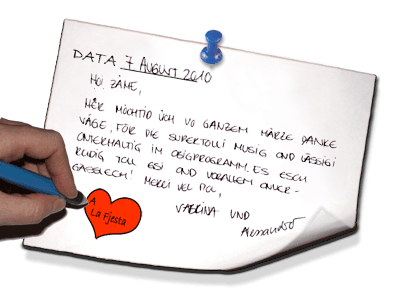 DATA 7 AUGUST 2010
HOI ZÄME,
MÉR MÖCHTID ÜCH VO GANZEM HÄRZE DANKE
VÄGE, FÖR DIE SUPERTOLLI MUSIG OND LÄSSIGI
ONTERHALTIG IM OBIGPROGRAMM. ES ESCH
RÜDIG TOLL GSI OND VORALLEM ONVER-
GÄSSLECH! MERCI VEL MOL,
SABRINA UND
Alessandro
A
La Fjesta